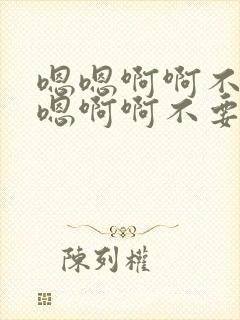 嗯嗯啊啊不
嗯啊啊不要
陳列權